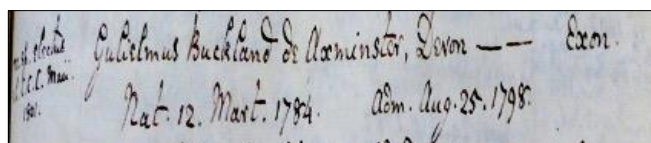 electus
C.C.C. Maii
1801.
Gulielmus Buckland de Axminster, Devon —— Exon.
Nat. 12. Mart. 1784. Adm. Aug. 25. 1798.